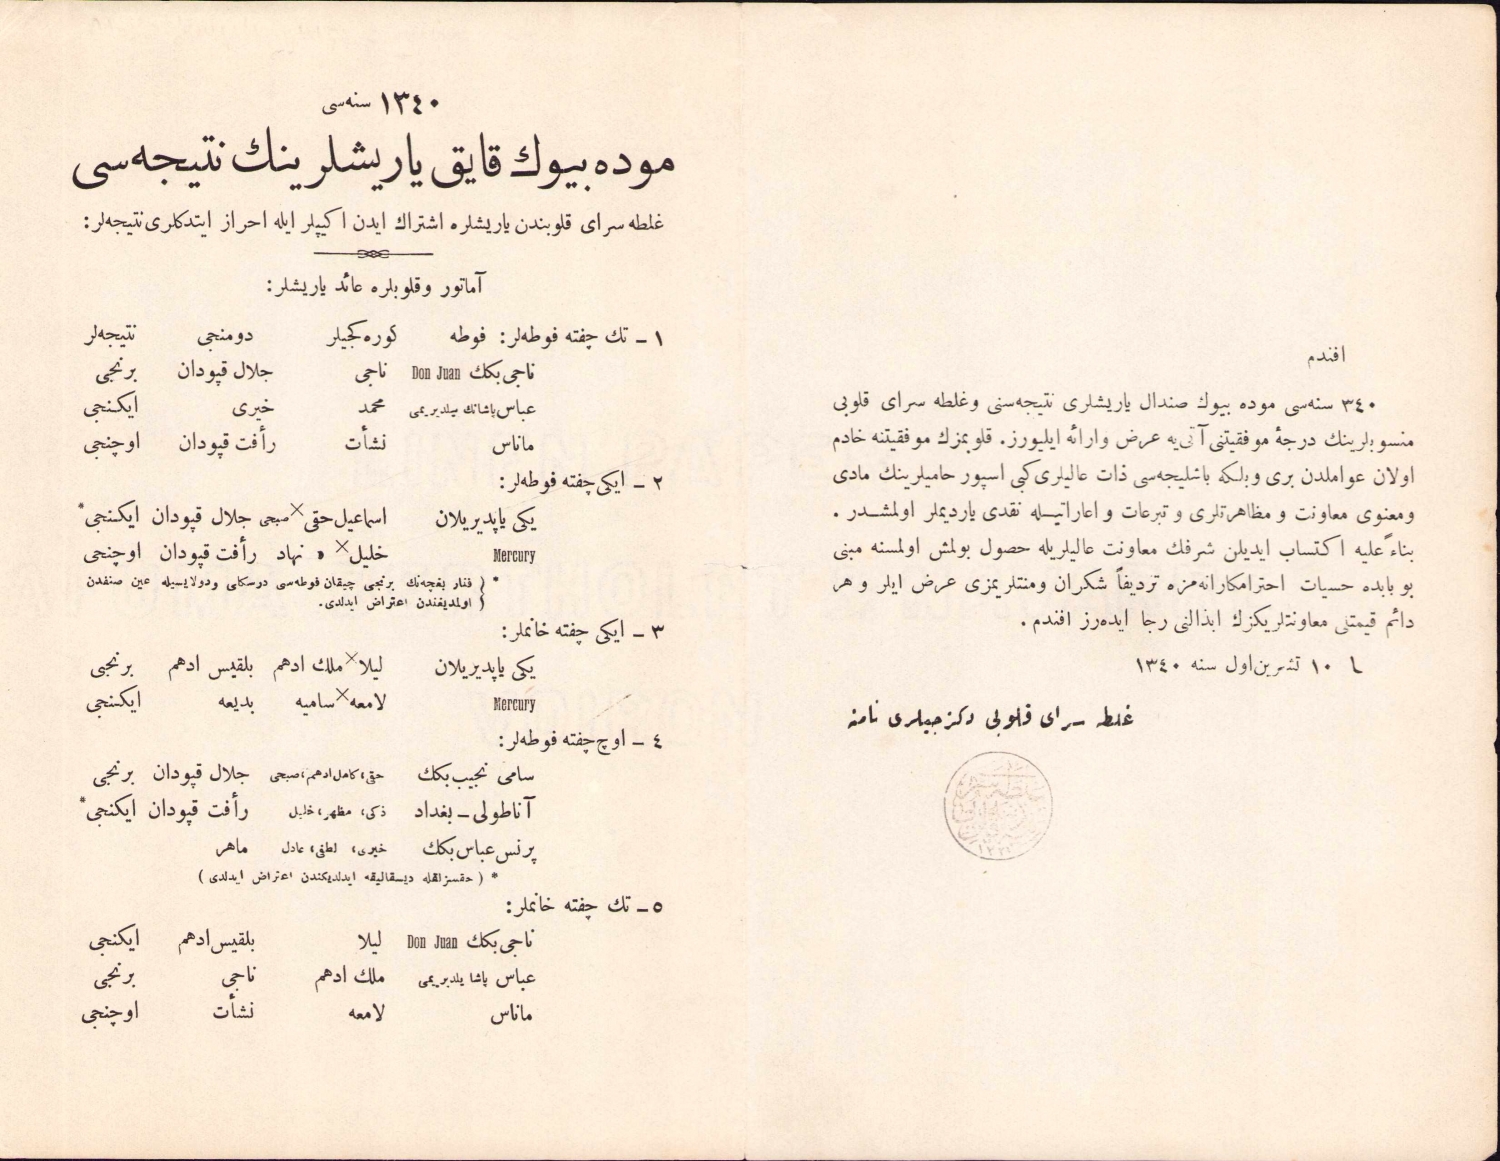 افندم
٣٤٠ سنه‌سی موده بیوك صندال یاریشلری نتیجه‌سنی وغلطه سرای قلوبی
منسوبلرینك درجهٔ موفقیتنی آتی‌یه عرض وارائه ایلیورز. قلوبمزك موفقیتنه خادم
اولان عواملدن بری وبلكه باشلیجه‌سی ذات عالیلری كبی اسپور حامیلرینك مادی
ومعنوی معاونت و مظاهرتلری و تبرعات و اعاراتیله نقدی یاردیملر اولمشدر .
بناءً علیه اكتساب ایدیلن شرفك معاونت عالیلریله حصول بولمش اولمسنه مبنی
بو بابده حسیات احترامكارانه‌مزه تردیفاً شكران ومنتلریمزی عرض ایلر و هر
دائم قیمتلی معاونتلریكزك ابذالنی رجا ایده‌رز افندم .
١٠ تشرین‌اول سنه ١٣٤٠
غلطه سرای قلوبی دكزجیلری نامنه
١٣٤٠ سنه‌سی
موده بیوك قایق یاریشلرینك نتیجه‌سی
غلطه سرای قلوبندن یاریشلره اشتراك ایدن اكیپلر ایله احراز ایتدكلری نتیجه‌لر:
آماتور وقلوبلره عائد یاریشلر:
١ ـ تك چفته فوطه‌لر: فوطه كوره‌كجیلر دومنجی نتیجه‌لر
ناجی بكك Don Juan ناجی جلال قپودان برنجی
عباس پاشانك ییلدیریمی محمد خیری ایكنجی
ماناس نشأت رأفت قپودان اوچنجی
٢ ـ ایكی چفته فوطه‌لر:
یكی یاپدیریلان اسماعیل حقی × صبحی جلال قپودان ایكنجی*
Mercury خلیل × نهاد رأفت قپودان اوچنجی
* ( فنار بغچه‌نك برنجی چیقان فوطه‌سی درسكالی ودولایسیله عین صنفدن
( اولمدیغندن اعتراض ایدلدی.
٣ ـ ایكی چفته خانملر:
یكی یاپدیریلان لیلا × ملك ادهم بلقیس ادهم برنجی
Mercury لامعه × سامیه بدیعه ایكنجی
٤ ـ اوچ چفته فوطه‌لر:
سامی نجیب بكك حقی، كامل ادهم، صبحی جلال قپودان برنجی
آناطولی ـ بغداد ذكی، مظهر، خلیل رأفت قپودان ایكنجی*
پرنس عباس بكك خیری، لطفی، عادل ماهر
* ( حقسزلقله دیسقالیفه ایدلدیكندن اعتراض ایدلدی )
٥ ـ تك چفته خانملر:
ناجی بكك Don Juan لیلا بلقیس ادهم ایكنجی
عباس پاشا یلدیریمی ملك ادهم ناجی برنجی
ماناس لامعه نشأت اوچنجی